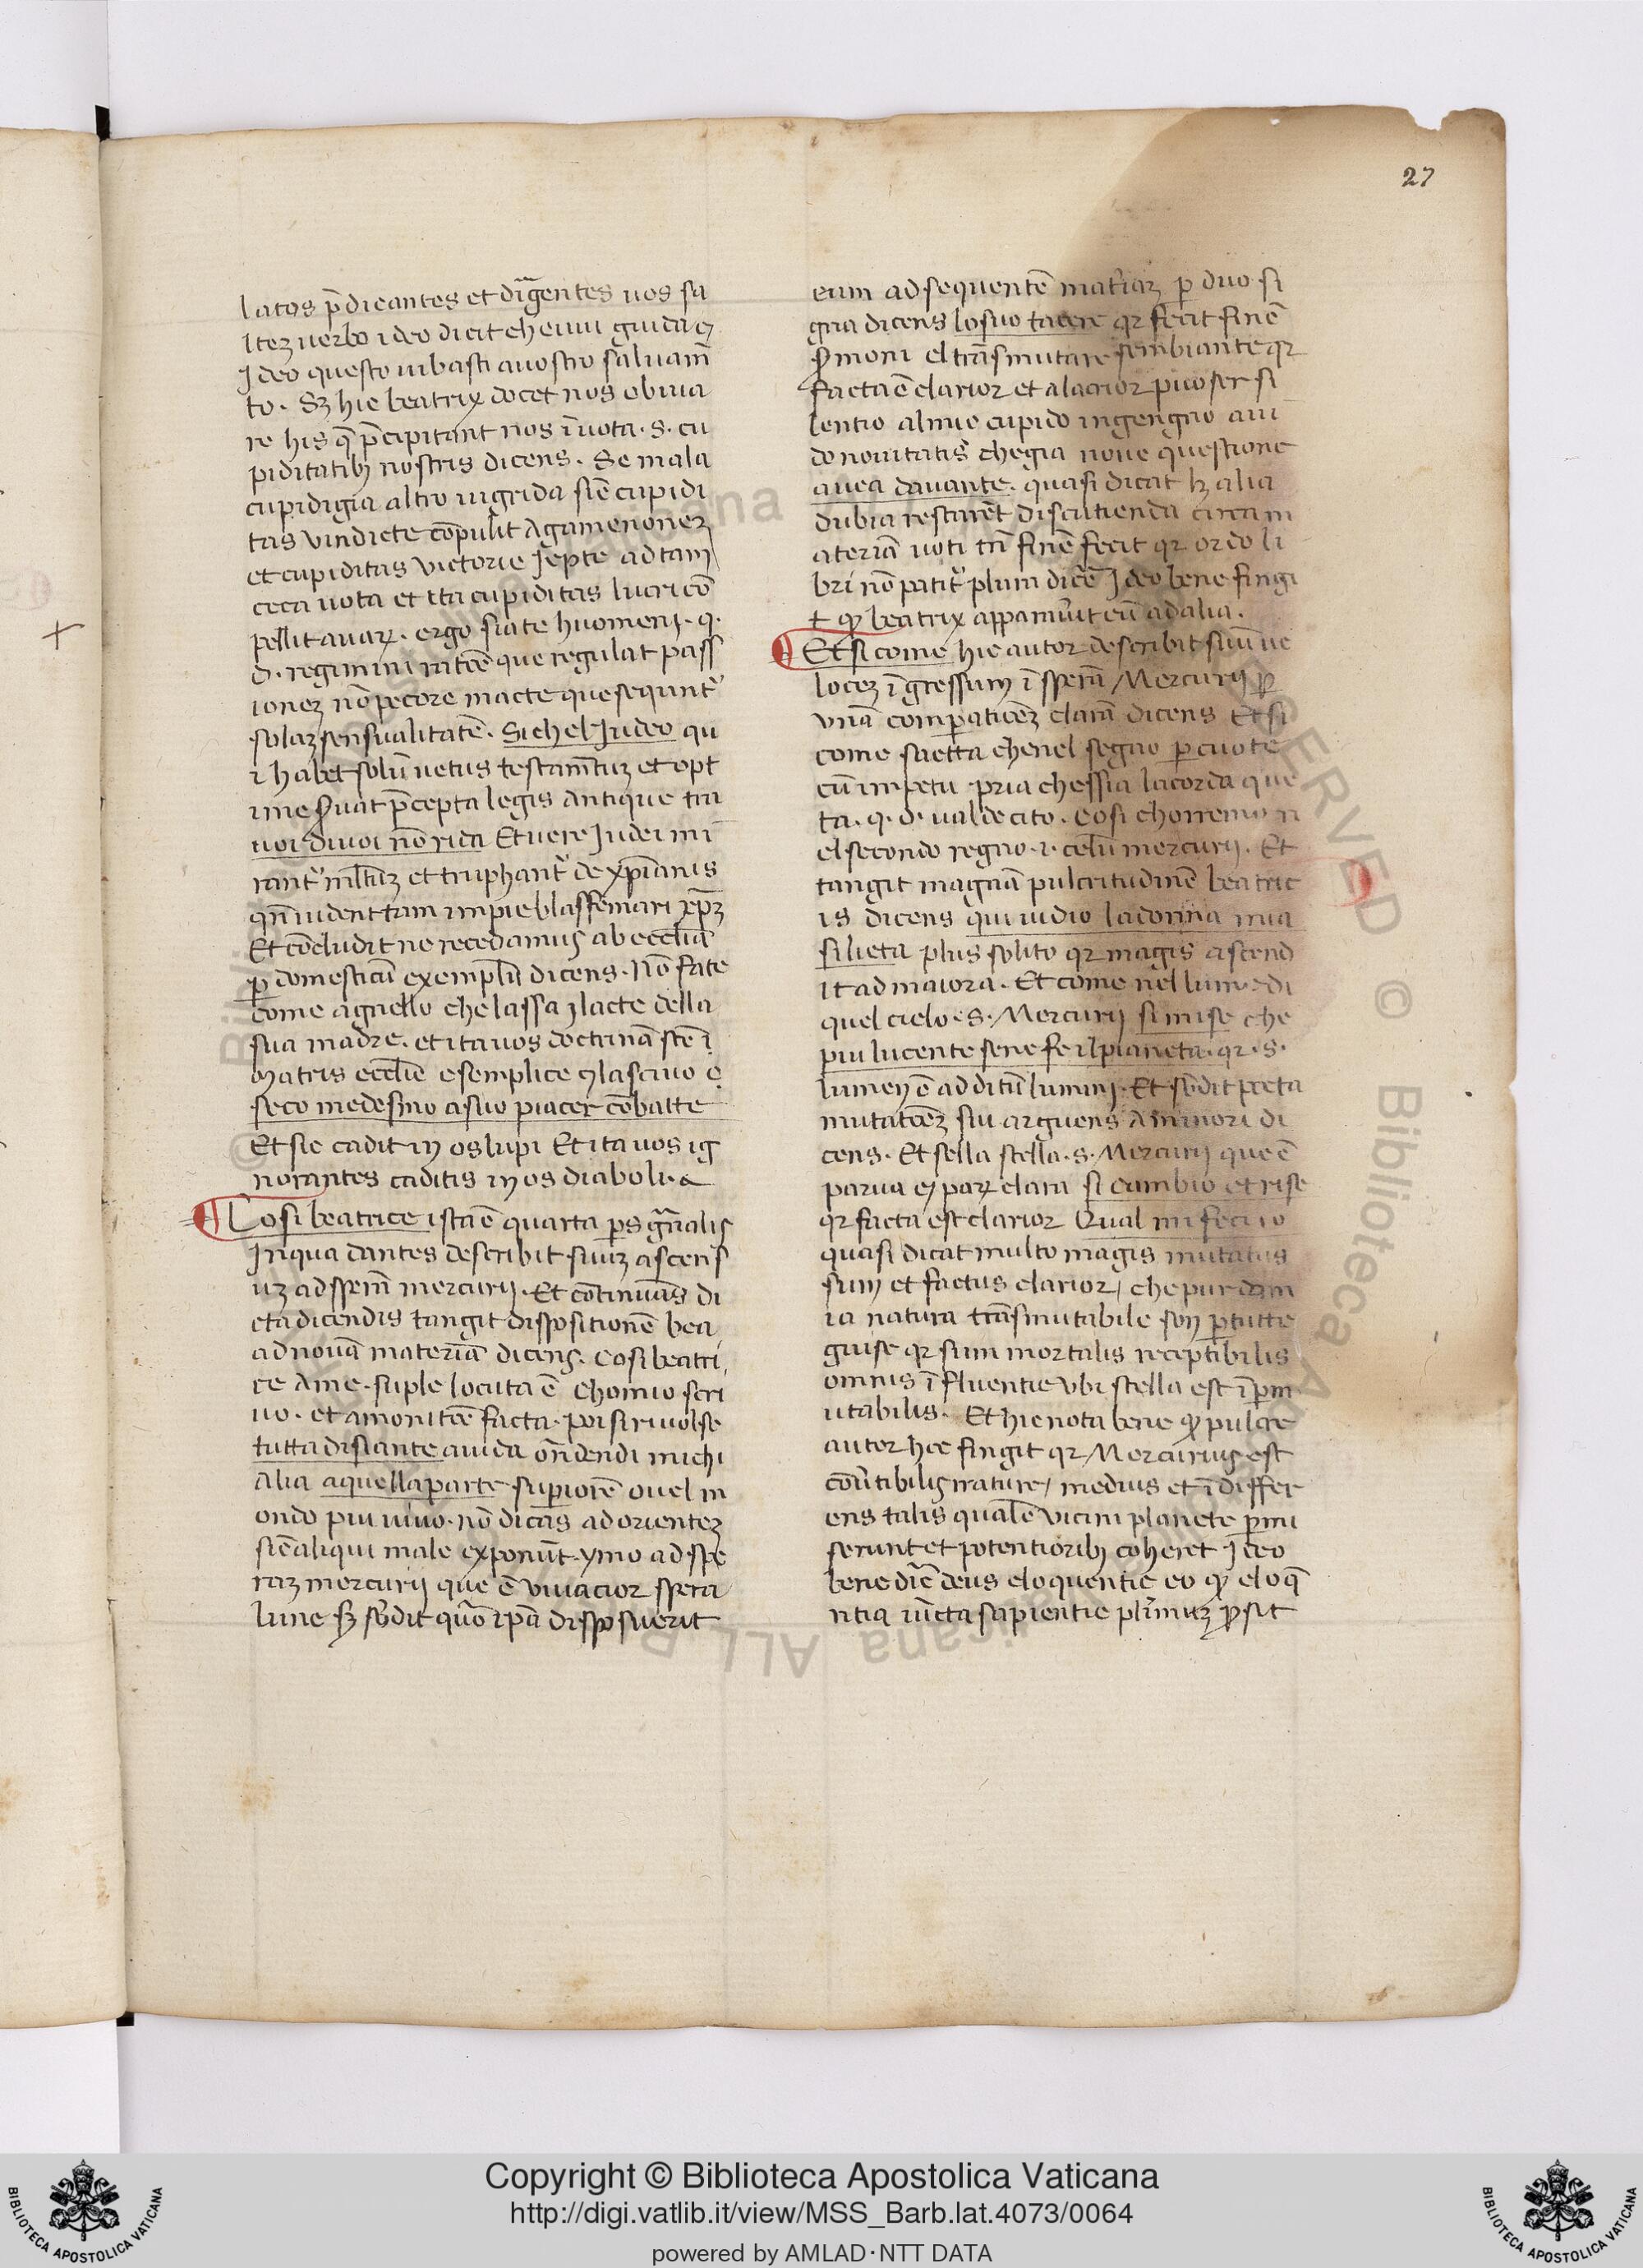 27
latos p̄dicantes et dir̄gentes uos sa
ltez uerbo ideo dicit che uui guida ⁊
Ideo questo ui basti a uostro saluam̄
to. Sȝ hic beatrix docet nos obuia
re his q̄ p̄cipitant nos ī uota .s. cu
piditatibȝ nostris dicens. Se mala
cupidigia altro ui grida sic̄ cupidi
tas vindicte cōpulit Agamenonez
et cupiditas victorie Jepte ad tam
ceca uota et ita cupiditas lucri cō
pellit auaꝝ. ergo siate huomeni. q.
d. regimini rat̄ōe que regulat pass
ionez nō pecore macte que sequnt᷑
solaz sensualitatē. Si chel Iudeo qu
i habet solū uetus testam̄tuz et opt
ime ꝯuat p̄cepta legis antique tra
uoi di uoi nō rida Et uere Iudei mi
rant᷑ ml̄tuz et truphant᷑ de xp̄ianis
qn̄ uident tam impie blassfemari xp̄ȝ
Et cōcludit ne recedamus ab eccl̄ia
ꝑ domesticū exemplū dicens. Nō fate
come agnello che lassa il acte della
sua madre. et ita uos doctrinā sc̄e ī
Matris eccl̄ie e semplice ⁊ lasciuo e
seco medesmo a suo piacer cōbatte
Et sic cadit in os lupi Et ita uos ig
norantes caditis in os diaboli.
Cosi beatrice ista ē quarta ꝑs gn̄alis
In qua dantes describit suuz ascens
uz ad sperā mercurij. Et cōtinuās di
cta dicendis tangit dispositionē bea
ad nouā materiā dicens. Cosi beatri
ce A me. suple locuta ē chomio scri
uo. et amonit̄ōe facta. poi si riuolse
tutta disiante auida on̄dendi michi
alia aquella parte suꝑiorē ouel m
ondo piu uiuo. nō dicas ad orientez
sic̄ aliqui male exponūt. ymo ad spe
raz mercurij que ē viuacior spera
lune sȝ sb̄dit quō ip̄ā disposuerit
eum ad sequentē mat̄iaz ꝑ duo si
gna dicens lo suo tacere qꝛ fecit finē
ꝯmoni el trāsmutare sembiante qꝛ
facta ē clarior et alacrior puoser si
lentio al mie cupido ingengno aui
do nouitatis che gia noue questione
auea dauante. quasi dicat lȝ alia
dubia restarēt discutienda circa m
ateriā uoti tn̄ finē fecit qꝛ ordo li
bri nō patit᷑ plura dic̄e Ideo bene fingi
t ꝙ beatrix appamuit eū ad alia.
Et si come hic autor describit suū ue
locez īgressum ī sperā Mercurij ꝑ
vnā comparat̄ōez clarā dicens Et si
come saetta che nel segno ꝑcuote
cū impetu. pria che ssia la corda que
ta. q. d. ualde cito. cosi chorremo n
el secondo regno .i. celū mercurij. Et
tangit magnā pulcritudinē beatric
is dicens qui uidio la donna mia
si lieta plus solito qꝛ magis ascend
it ad maiora. Et come nel lume di
quel cielo .s. Mercurij si mise che
piu lucente sene fe il pianeta. qꝛ .s.
lumen ē additū lumini. Et sb̄dit poeta
mutat̄ōez sui arguens A minori di
cens. Et sella stella .s. Mercurij que ē
parua et paꝝ clara si cambio et rise
qꝛ facta est clarior Qual mi feci io
quasi dicat multo magis mutatus
sum et factus clarior, che pur dam
ia natura trāsmutabile son ꝑ tutte
guise qꝛ sum mortalis receptibilis
omnis īfluentie vbi stella est īꝑm
utabilis. Et hic nota bene ꝙ pulcre
autor hoc fingit qꝛ Mercurius est
cōūtibilis nature, medius et īdiffer
ens talis qualē vicini planete ꝑmi
serunt et potentioribȝ coheret Ideo
bene dic̄ deus eloquentie eo ꝙ eloq̄
ntia iūcta sapientie plurimuz ꝓsit
Copyright © Biblioteca Apostolica Vaticana
http://digi.vatlib.it/view/MSS_Barb.lat.4073/0064
powered by AMLAD·NTT DATA
BIBLIOTECA APOSTOLICA VATICANA
BIBLIOTECA APOSTOLICA VATICANA